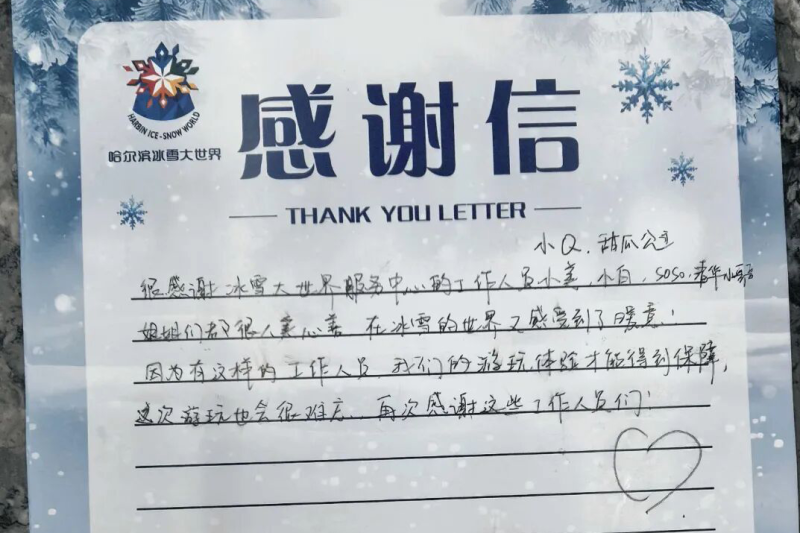 HARBIN ICE-SNOW WORLD
哈尔滨冰雪大世界
感谢信
THANK YOU LETTER
小Q、甜瓜公主
很感谢冰雪大世界服务中心的工作人员小美、小白、SOSO、
姐姐们都很人美心善 在冰雪的世界又感受到了暖意！
因为有这样的工作人员,我们的游玩体验才能得到保障,
这次游玩也会很难忘、再次感谢这些工作人员们！